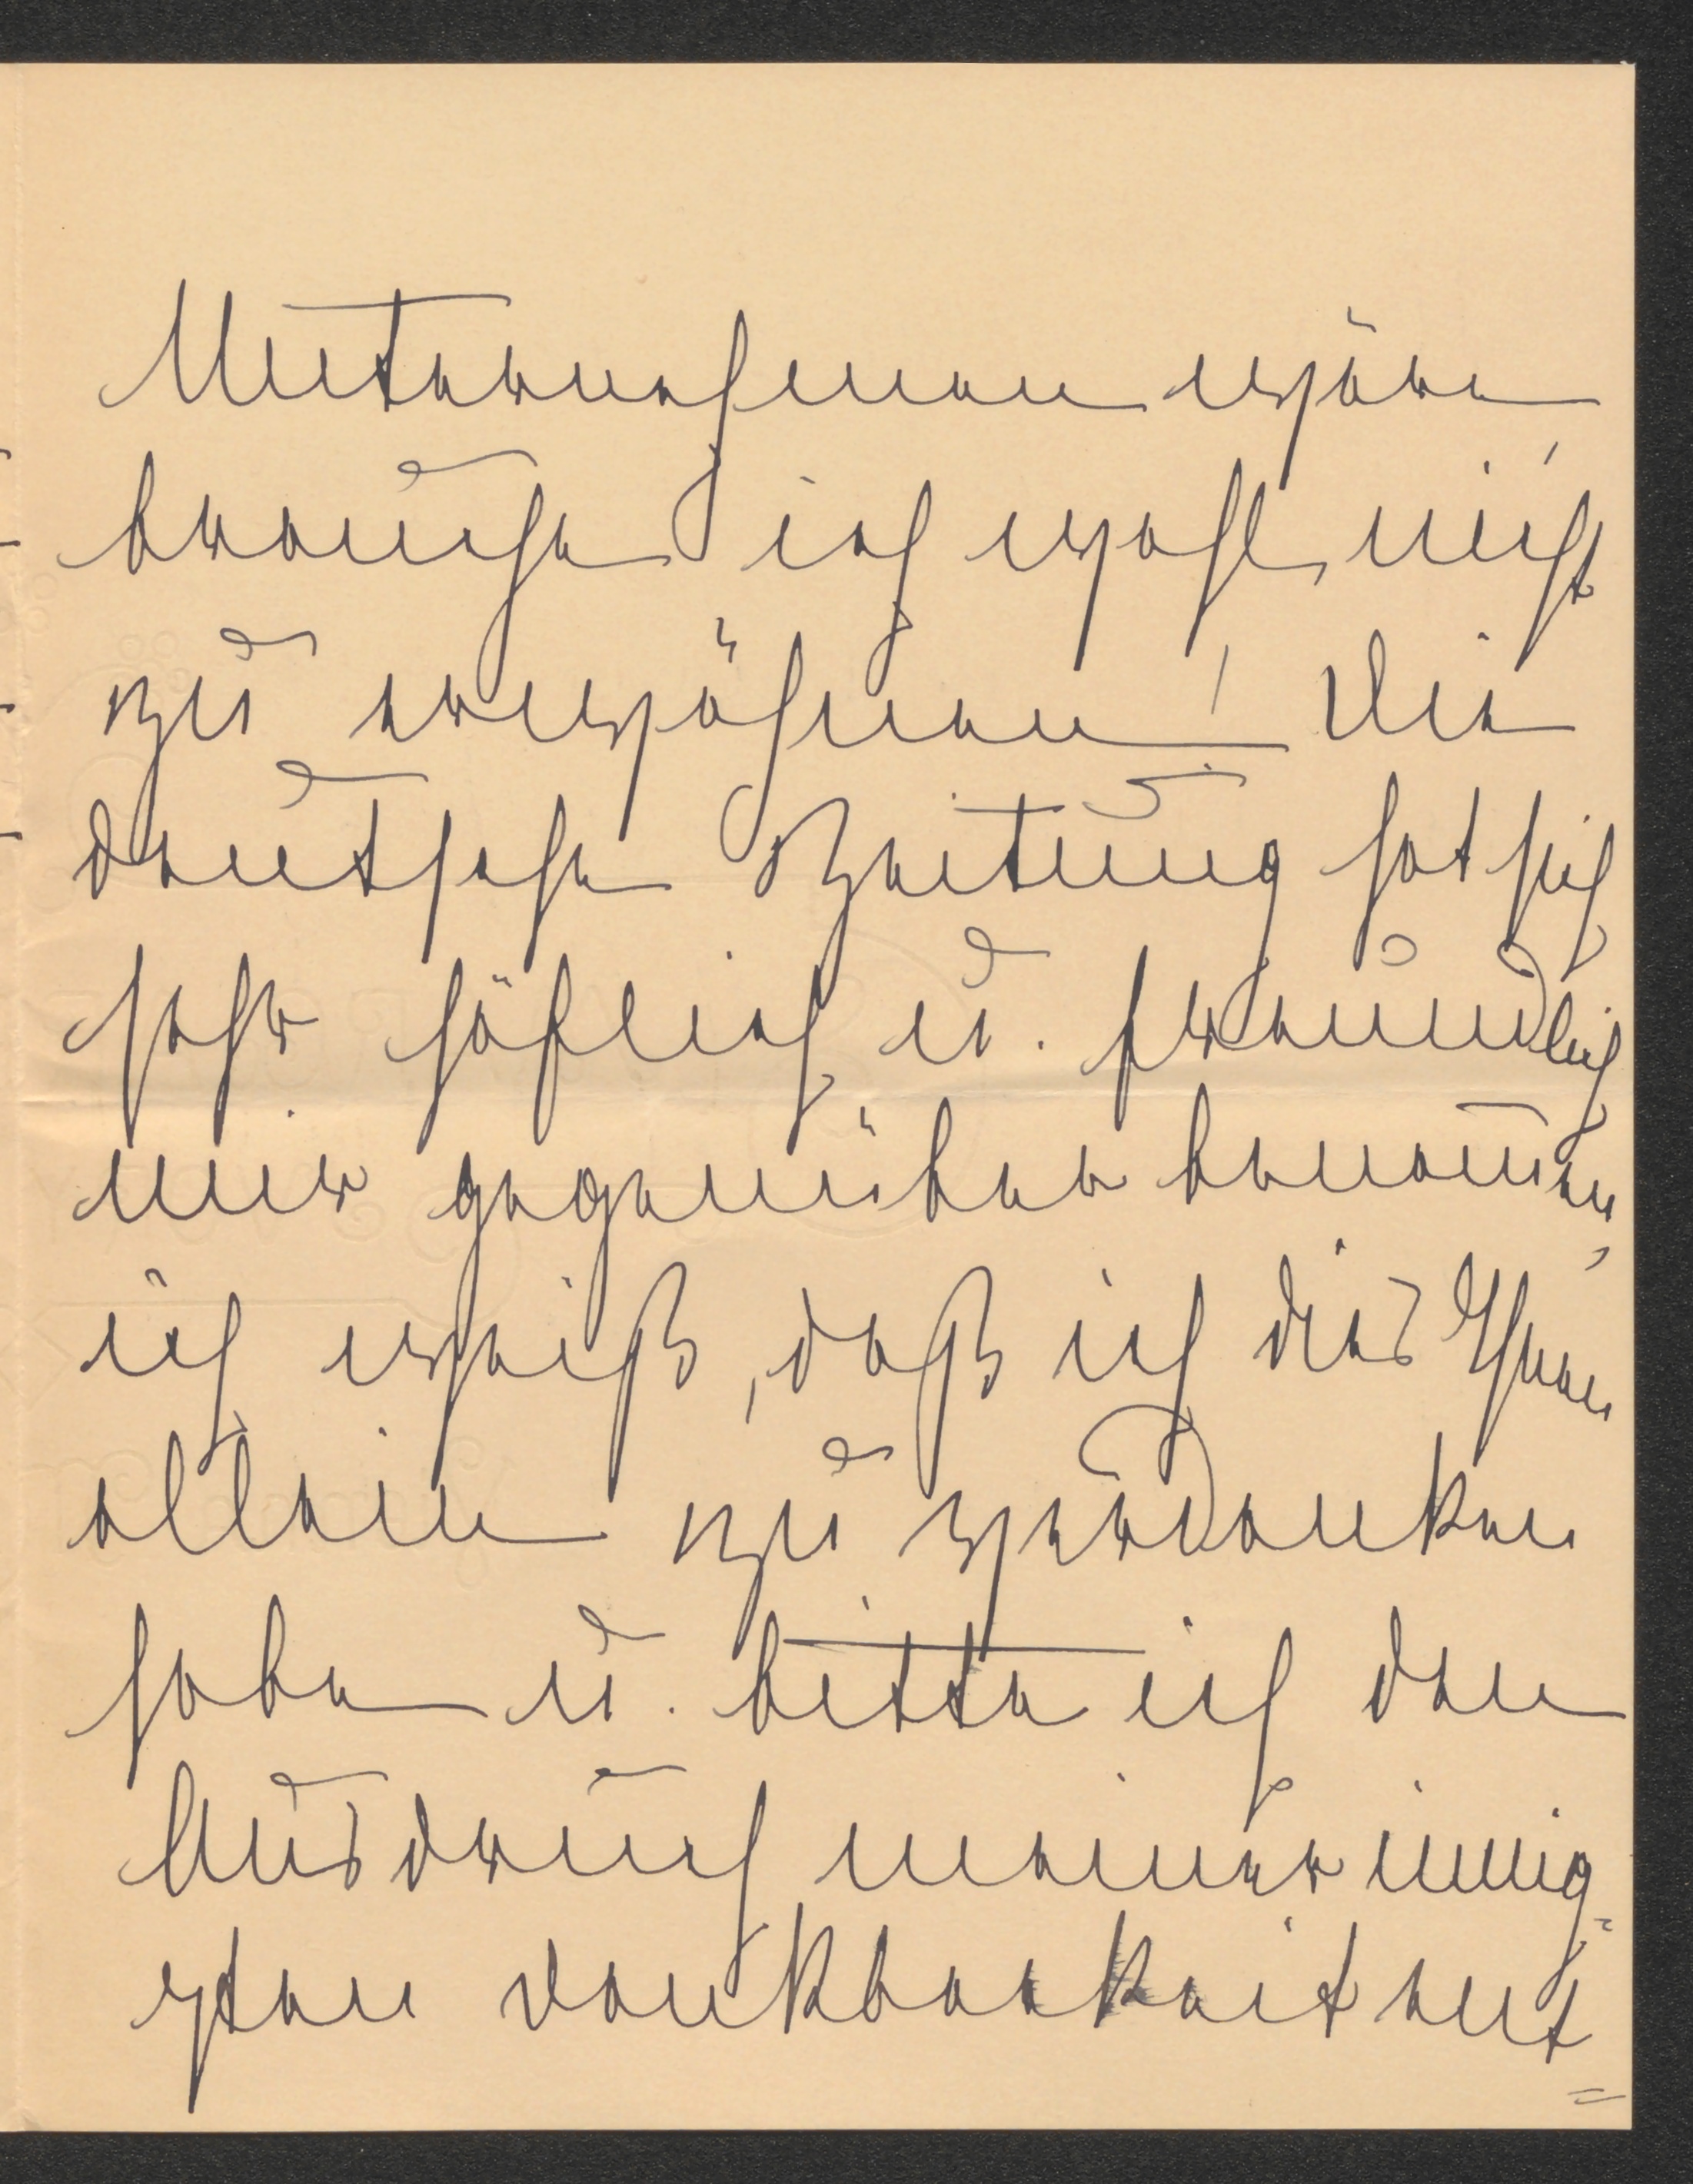 Unternehmen wäre,
brauche ich wohl nicht
zu erwähnen! Die
deutsche Zeitung hat sich
sehr höflich u. freundlich
mir gegenüber benommen,
ich weiß, daß ich dies Ihnen
allein zu verdanken
habe u. bitte ich den
Ausdruck meiner innig-
sten Dankbarkeit ent=